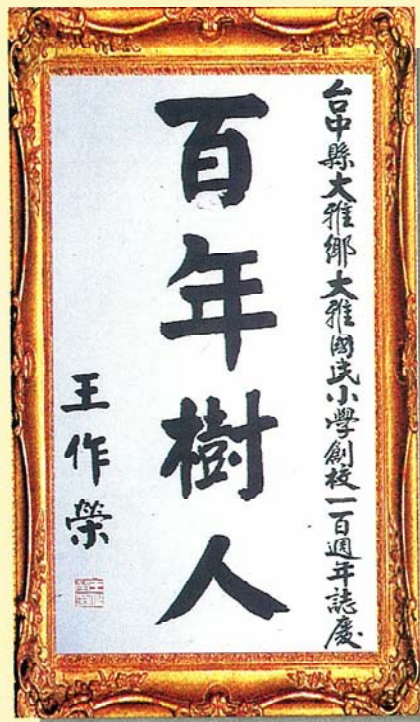 台中縣大雅鄉大雅國民小學創校一百週年誌慶
百年樹人
王作榮